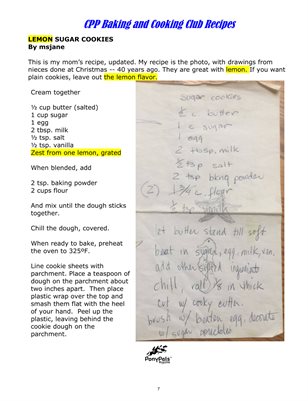 CPP Baking and Cooking Club Recipes
LEMON SUGAR COOKIES
By msjane
This is my mom's recipe, updated. My recipe is the photo, with drawings from
nieces done at Christmas -- 40 years ago. They are great with lemon. If you want
plain cookies, leave out the lemon flavor.
Cream together
½ cup butter (salted)
1 cup sugar
1 egg
2 tbsp. milk
½ tsp. salt
½ tsp. vanilla
Zest from one lemon, grated
When blended, add
2 tsp. baking powder
2 cups flour
And mix until the dough sticks
together.
Chill the dough, covered.
When ready to bake, preheat
the oven to 325ºF.
Line cookie sheets with
parchment. Place a teaspoon of
dough on the parchment about
two inches apart. Then place
plastic wrap over the top and
smash them flat with the heel
of your hand. Peel up the
plastic, leaving behind the
cookie dough on the
parchment.
Sugar cookies
½ c butter
1 c sugar
1 egg
2 tbsp. milk
½ tsp salt
2 tsp baking powder
(2) flour
½ tsp
let butter stand till soft
beat in sugar, egg, milk, van.
add other ingredients
chill, roll 1/8 in thick
cut w/ cooky cutter.
brush w/ beaten egg, decorate
w/ sugar sprinkles
PonyPals
7